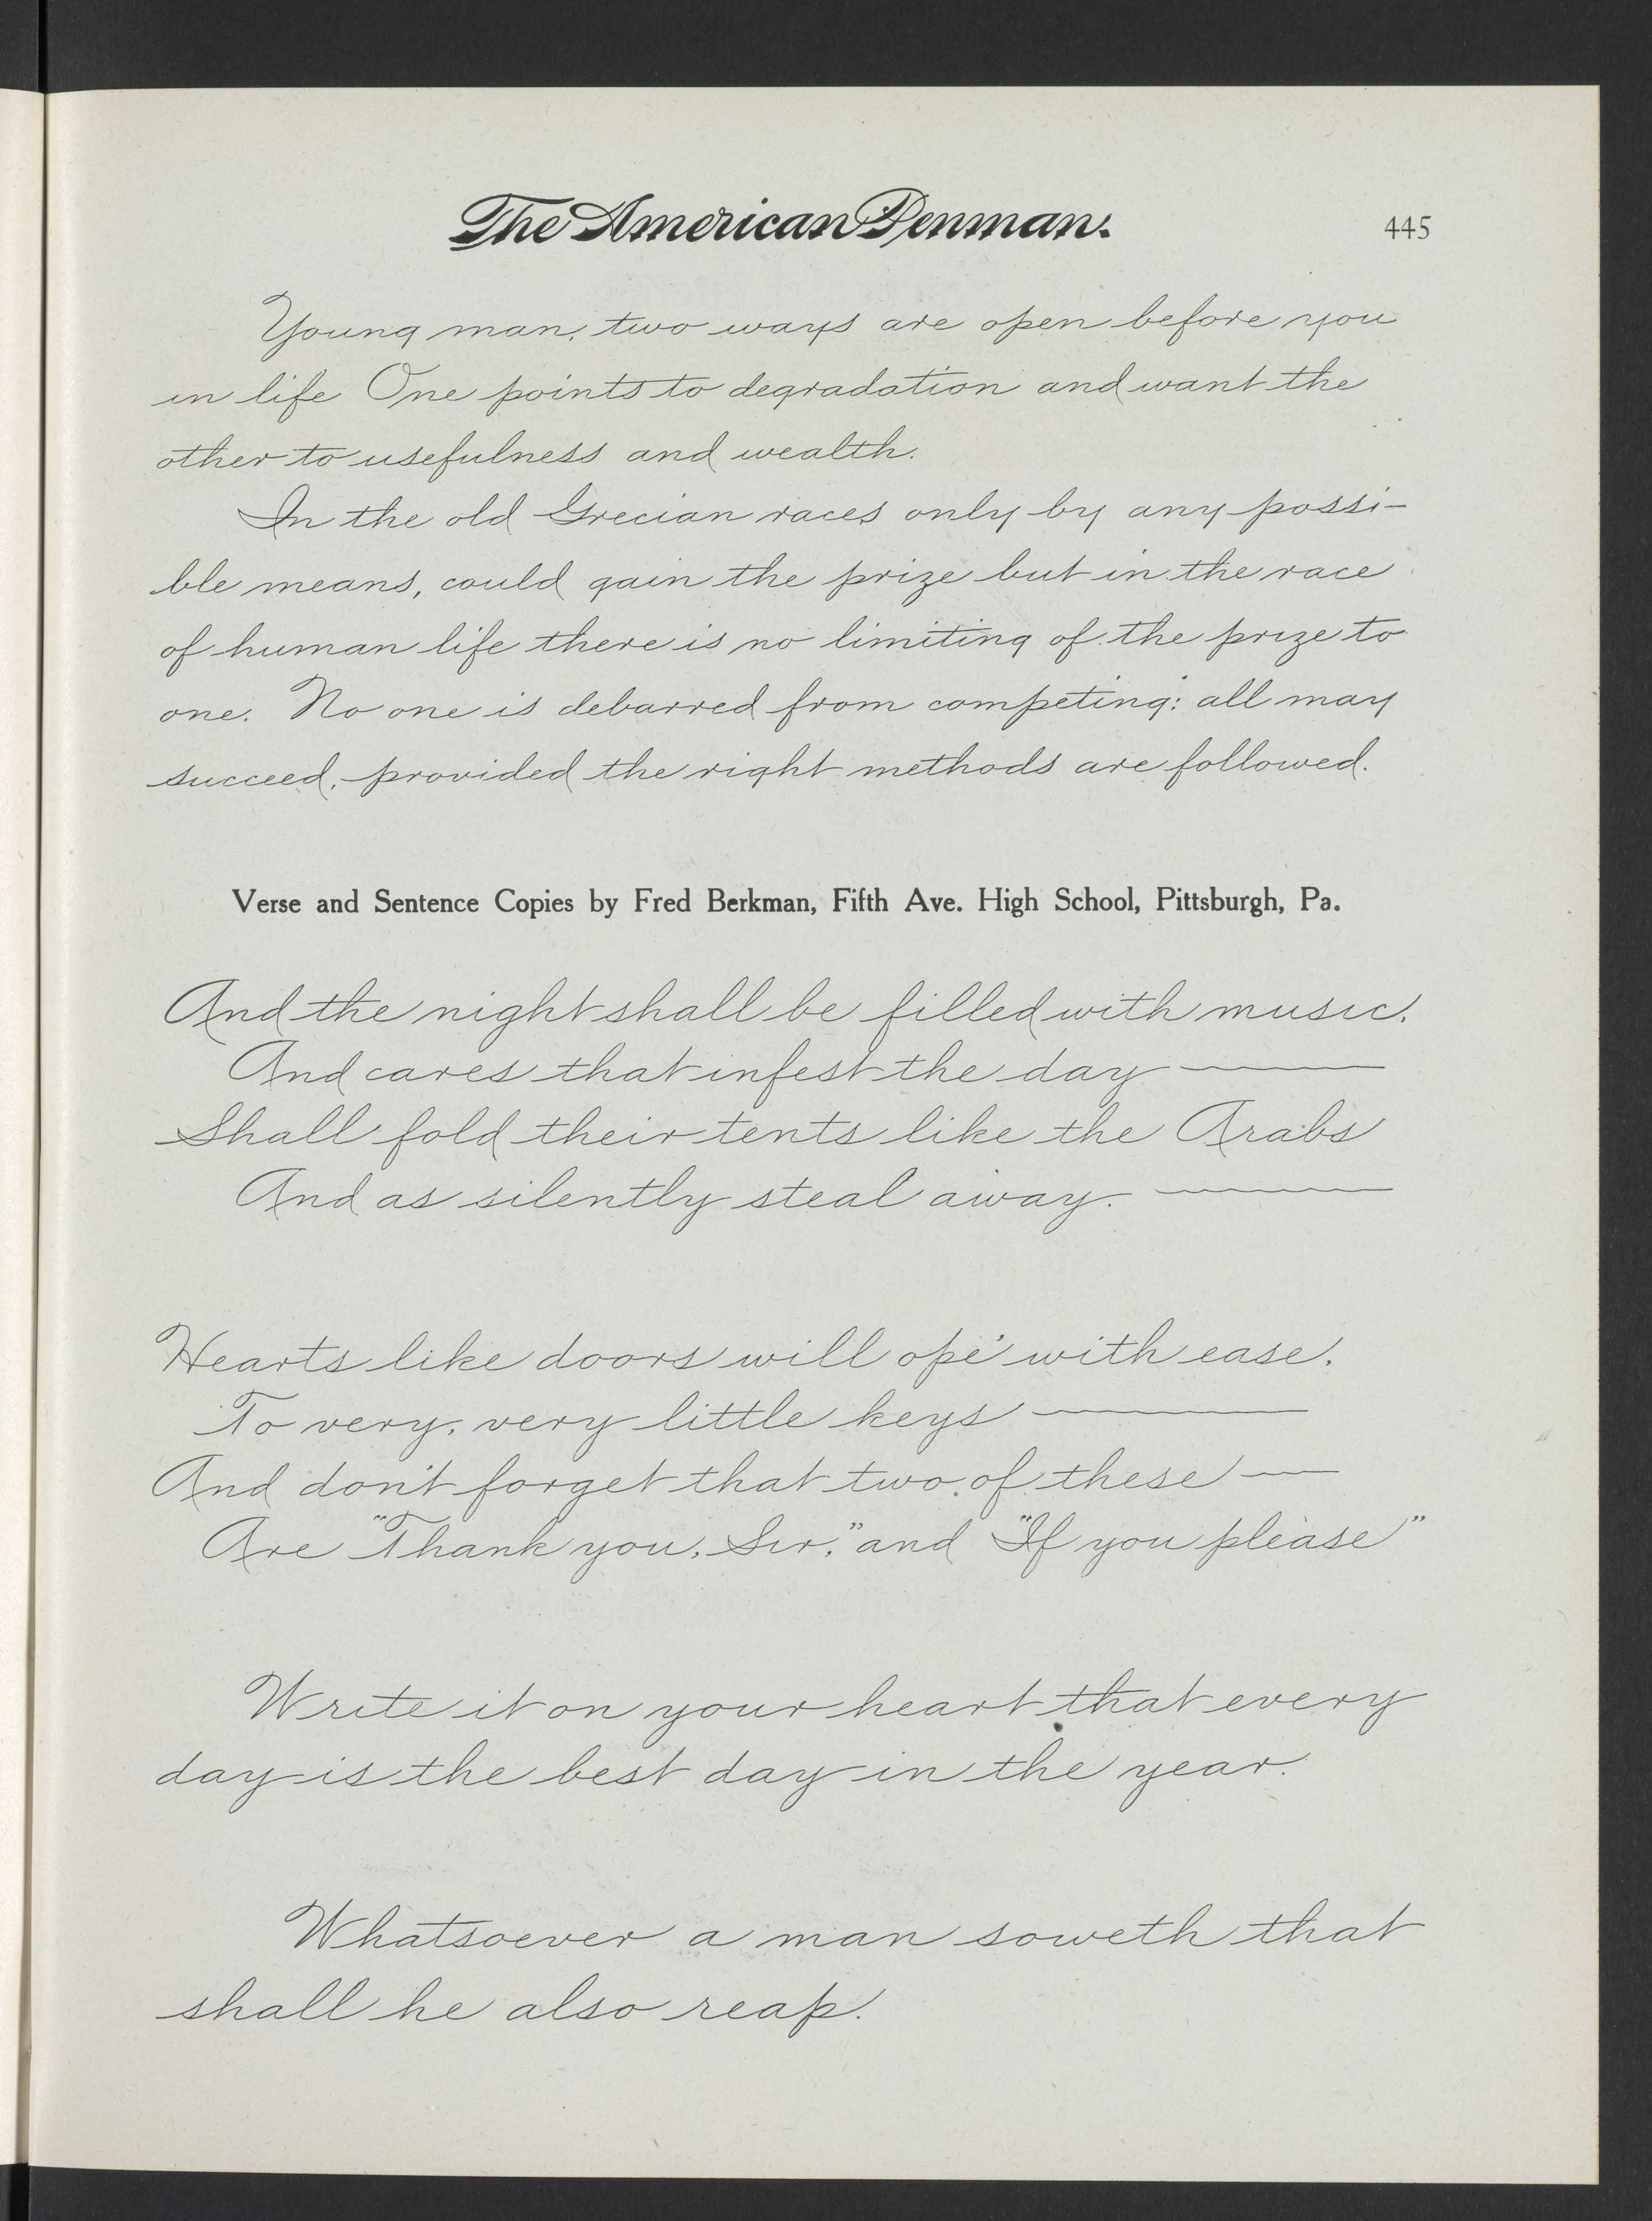 The American Penman.
445
Young man, two ways are open before you
in life One points to degradation and want the
other to usefulness and wealth.
In the old Grecian races only by any possi-
ble means, could gain the prize but in the race
of human life there is no limiting of the prize to
one. No one is debarred from competing: all may
succeed, provided the right methods are followed.
Verse and Sentence Copies by Fred Berkman, Fifth Ave. High School, Pittsburgh, Pa.
And the night shall be filled with music,
And cares that infest the day
Shall fold their tents like the Arabs
And as silently steal away.
Hearts like doors will ope' with ease,
To very, very little keys
And don't forget that two of these
Are "Thank you, Sir," and "If you please"
Write it on your heart that every
day is the best day in the year.
Whatsoever a man soweth that
shall he also reap.